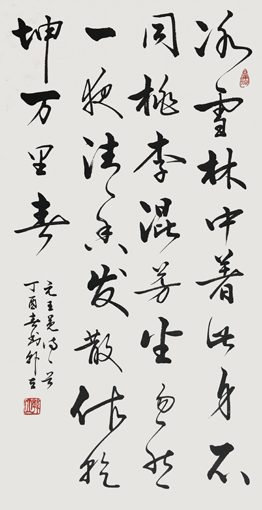 冰雪林中着此身不
同桃李混芳尘忽然
一夜清香发散作乾
坤万里春
元王冕诗一首
丁酉春